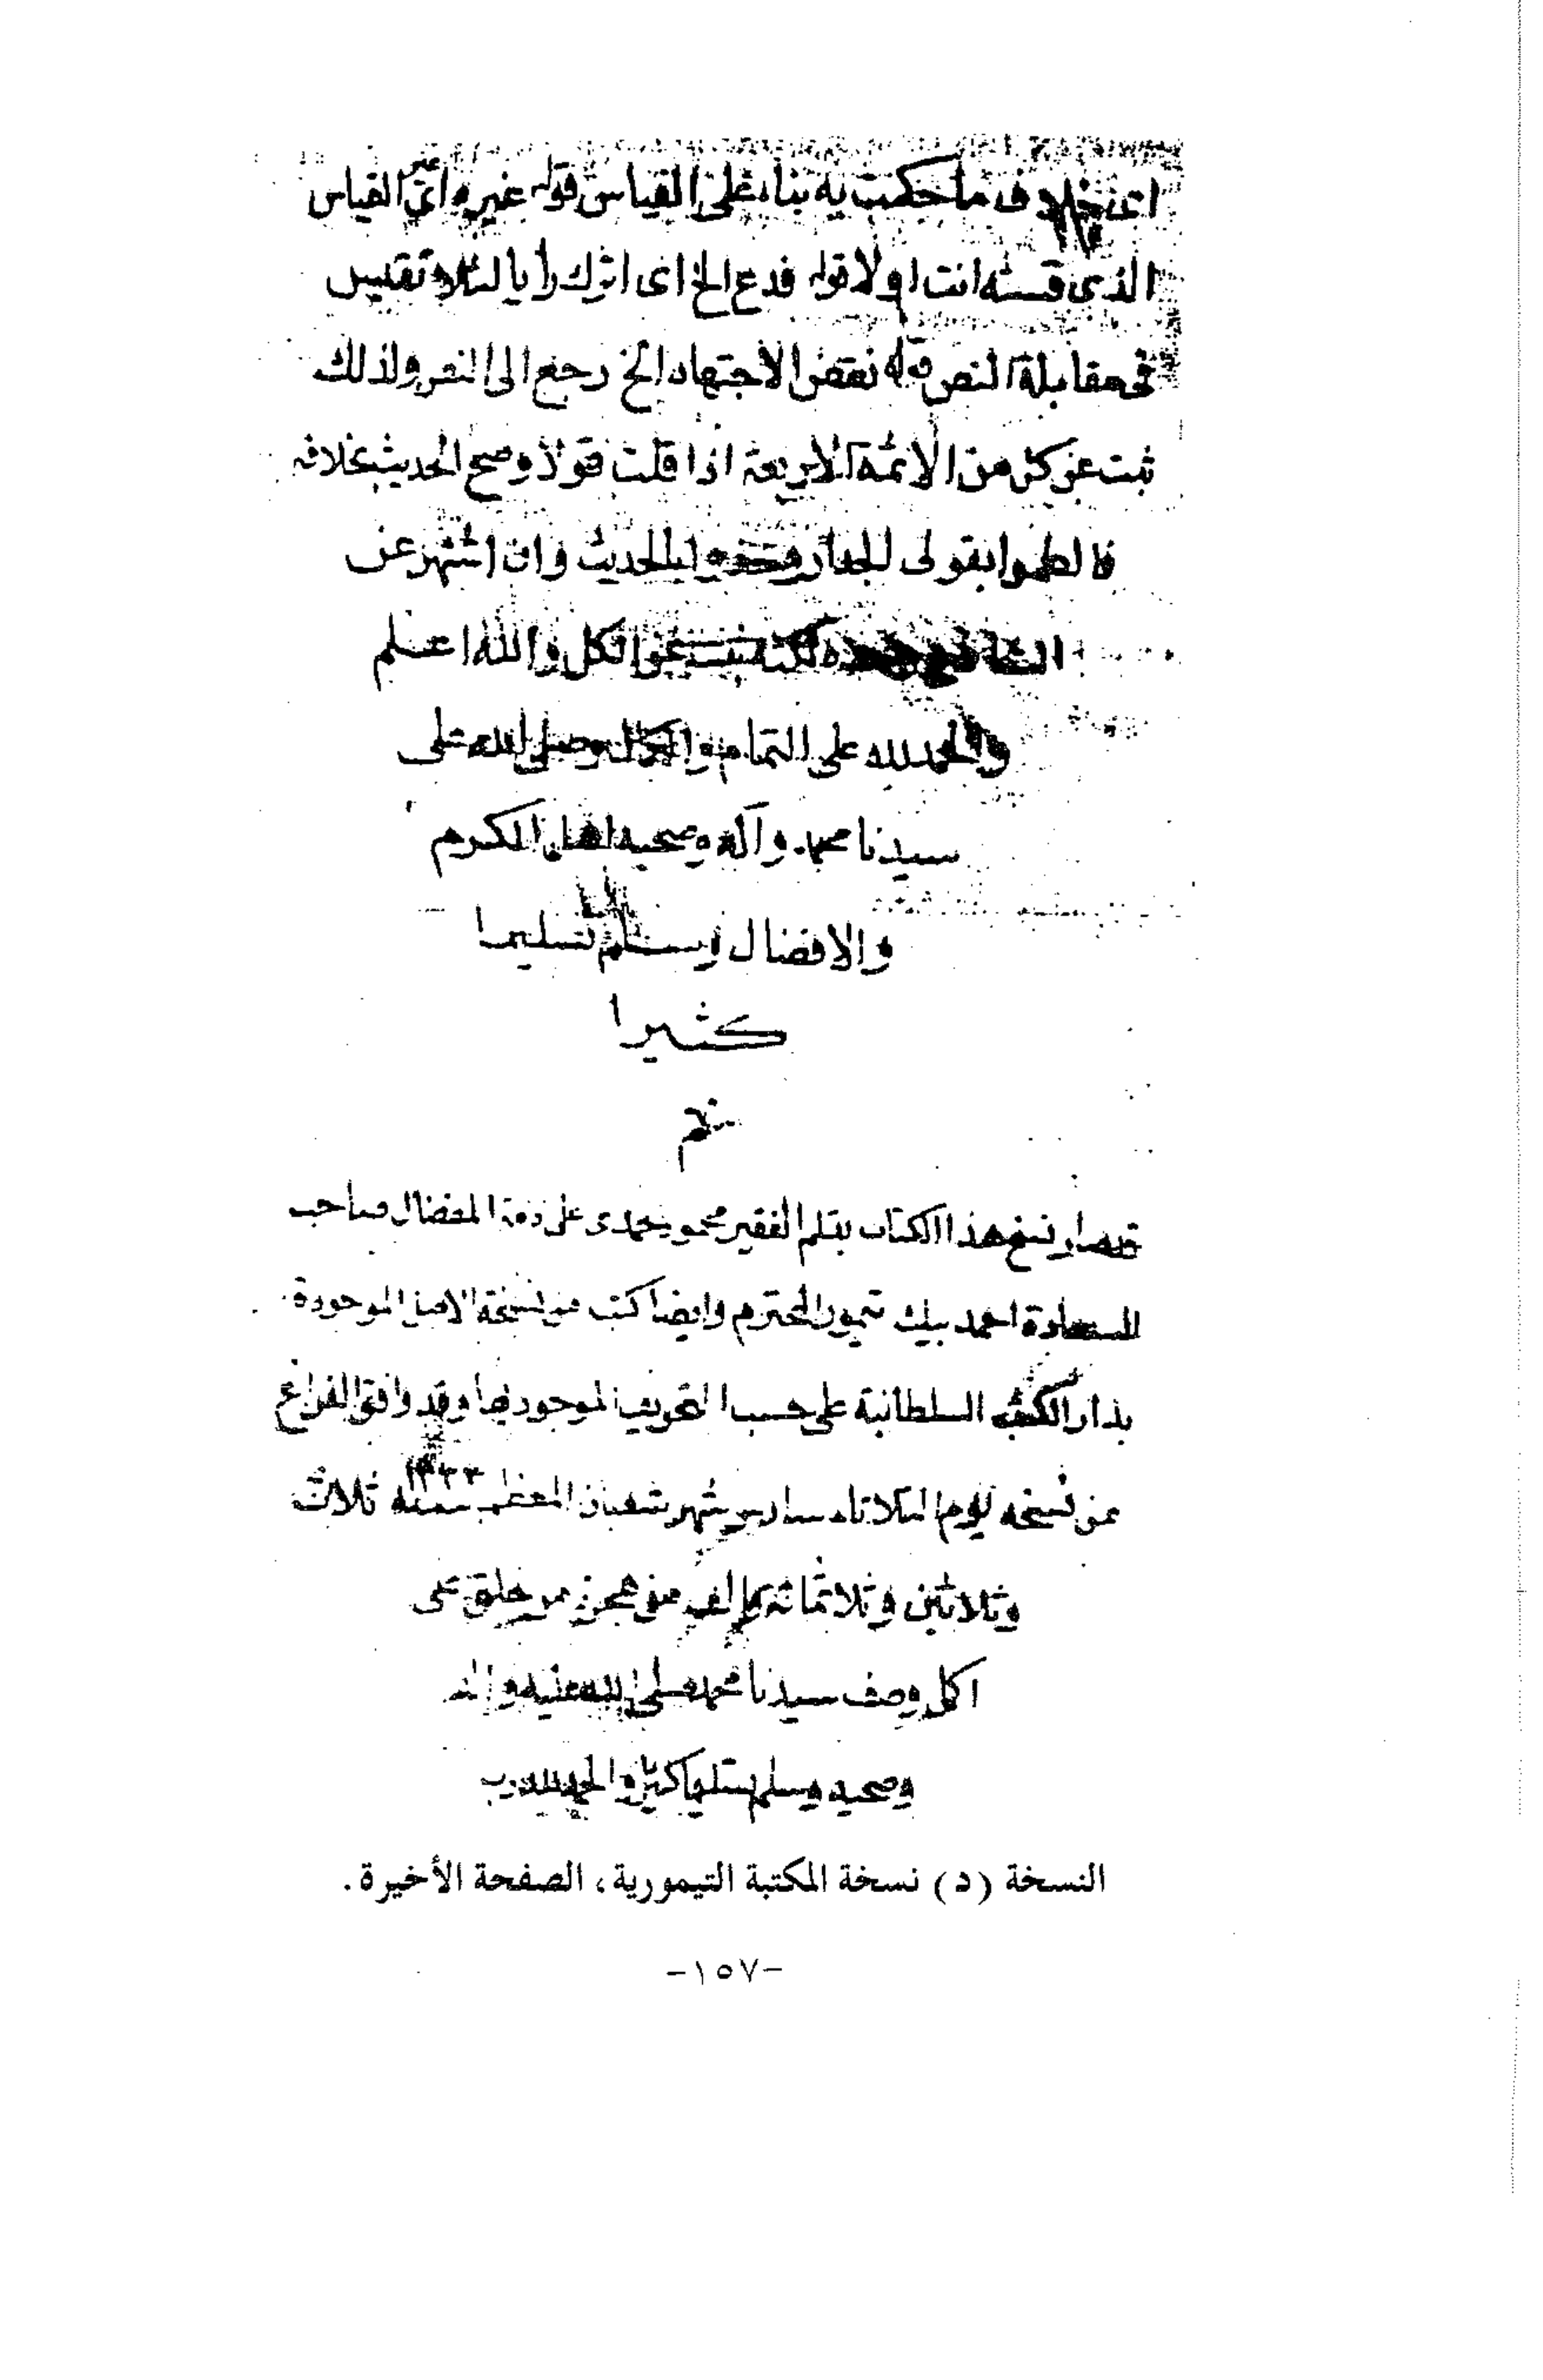 اى بخلاف ما حكمت به بناء على القياس قوله غيره اى غير القياس
الذى قسته انت اولا قوله فدع الخ اى اترك رأيا لئلا تقيس
فى مقابلة النص قوله نقض الاجتهاد الخ رجع الى النص ولذلك
ثبت عن كل من الائمة الاربعة اذا قلت قولا وصح الحديث بخلافه
بقولى الحديث وان اشتهر عن
لكنه عن الكل والله اعلم
والحمد لله على التمام وصلى الله على
سيدنا محمد وآله وصحبه اهل الكرم
والافضال وسلم تسليما
كثيرا
تم
قد صار نسخ هذا الكتاب بقلم الفقير محمود حمدى على ذمة المفضال صاحب
السعادة احمد بيك تيمور المحترم وايضا كتب من نسخة الاصل الموجودة
بدار الكتب السلطانية على حسب التحريف الموجود بها وقد وافق الفراغ
من نسخه يوم الثلاثاء سادس شهر شعبان المعظم سنة ١٣٣٣ ثلاث
وثلاثين وثلاثمائة والف من هجرة من خلق على
اكمل وصف سيدنا محمد صلى الله عليه وآله
وصحبه وسلم تسليما كثيرا والحمد لله رب
النسخة (د) نسخة المكتبة التيمورية، الصفحة الأخيرة.
-١٥٧-